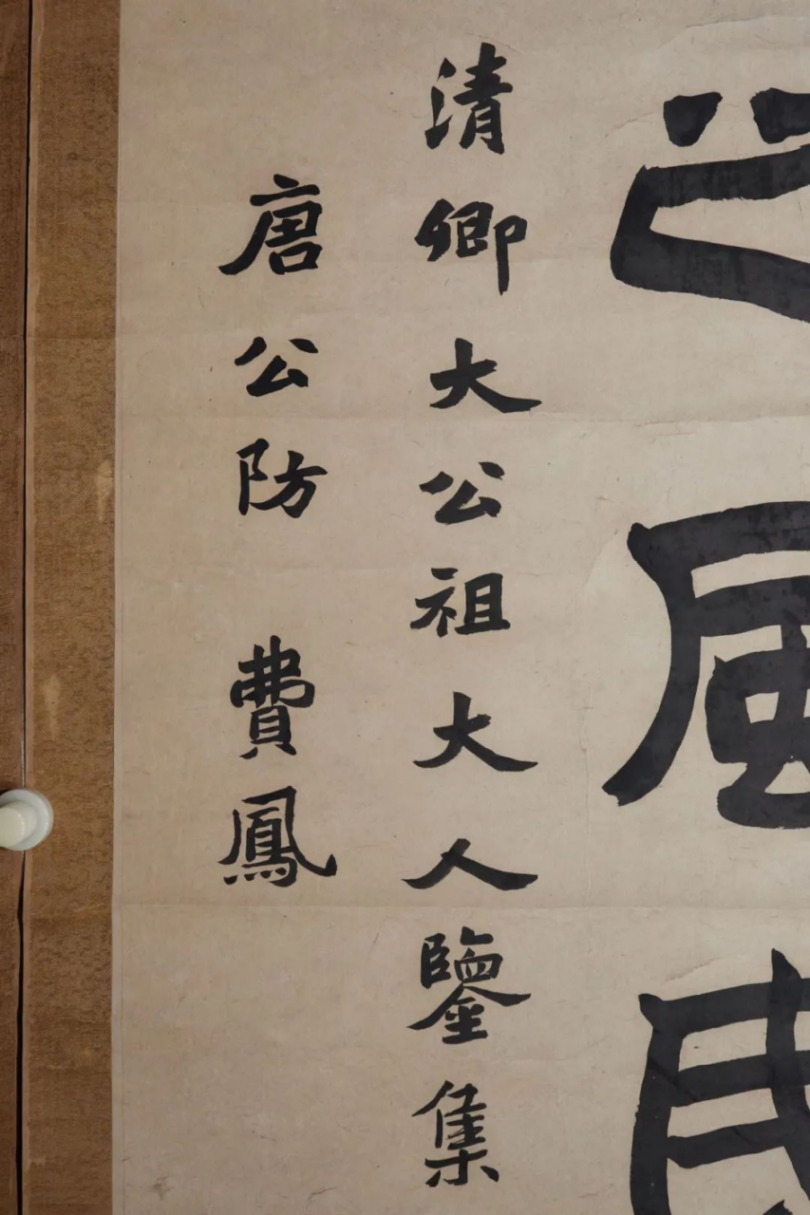 風
清卿大公祖大人鑒集
唐公防 費鳳